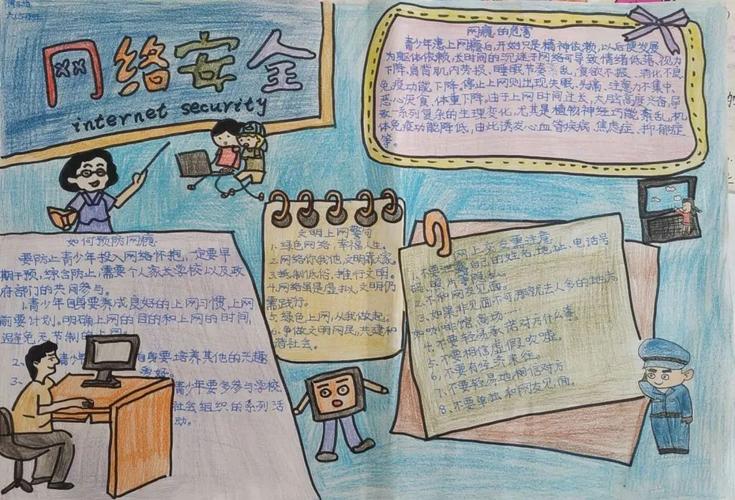 网络安全
internet security
网瘾的危害
青少年患上网瘾后,开始只是精神依赖,以后便发展
为躯体依赖,长时间的沉迷于网络可导致情绪低落、视力
下降、肩背肌肉劳损、睡眠节奏紊乱、食欲不振、消化不良、
免疫功能下降。停止上网则出现失眠、头痛、注意力不集中、
恶心厌食、体重下降。由于上网时间过长,大脑高度兴奋,导
致一系列复杂的生理变化,尤其是植物神经功能紊乱,机
体免疫功能降低,由此诱发心血管疾病、焦虑症、抑郁症
等。
如何预防网瘾
要防止青少年投入网络怀抱,一定要早
期干预,综合防止,需要个人家长学校以及政
府部门的共同参与。
1.青少年自身要养成良好的上网习惯,上网
前要计划。明确上网的目的和上网的时间,
避免无节制的上网。
2、青少年自身要培养其他的兴趣
爱好。
3、青少年要多参与学校
社会组织的系列活
动。
文明上网警句
1.绿色网络,幸福人生。
2.网络你我他,文明靠大家。
3.抵制低俗,推行文明。
4.网络虽是虚拟,文明仍
需践行。
5.绿色上网,从我做起。
6.争做文明网民,共建和
谐社会。
网上交友要注意
1.不要泄露自己的姓名、地址、电话号
码、照片等
2.不和网友见面。
3.如果非见面不可,应该去人多的地方
如咖啡馆、商场……
4.不要轻易承诺对方什么事。
5.不要相信虚假吹嘘。
6.不要有经济来往。
7.不要轻易地相信对方
8.不要单独和网友见面。